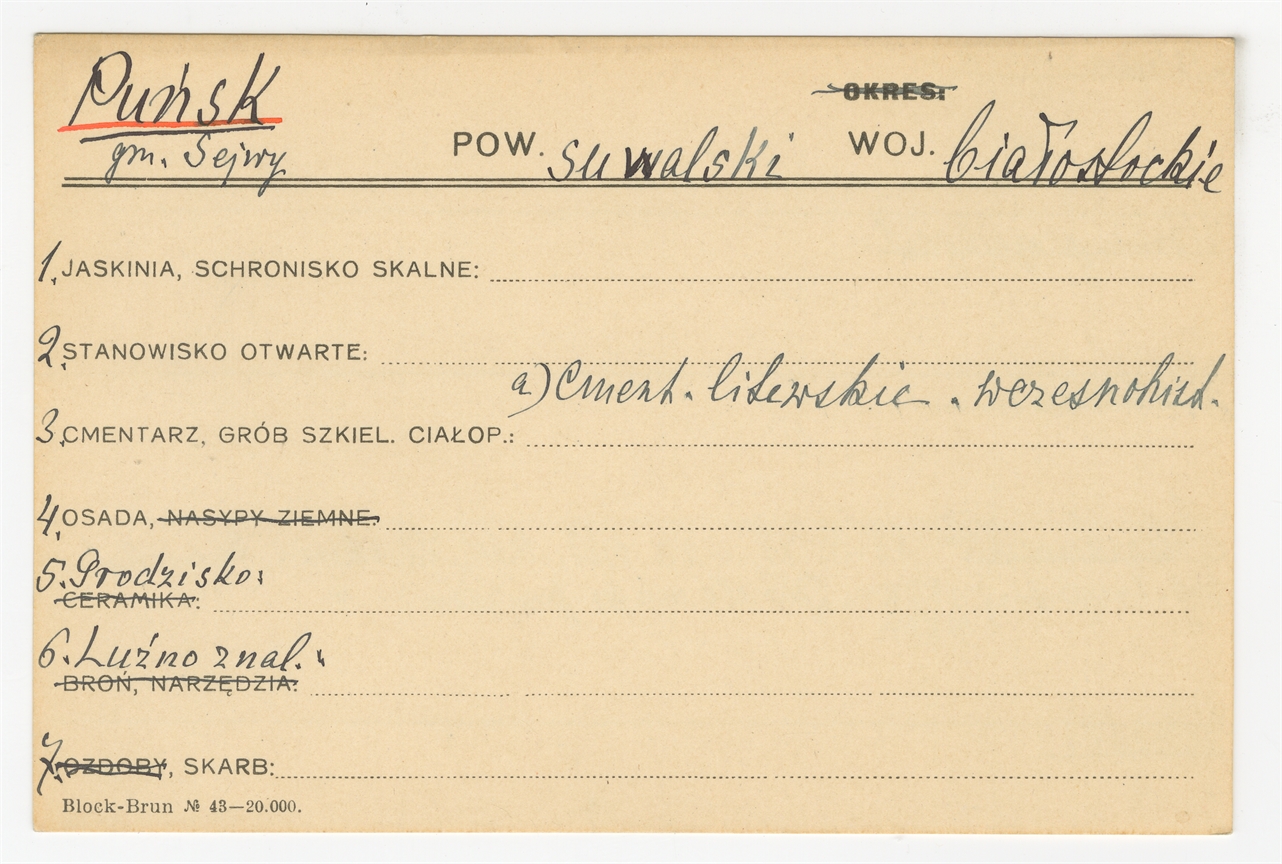 Puńsk
gm. Sejwy
OKRES:
POW. suwalski WOJ. białostockie
1. JASKINIA, SCHRONISKO SKALNE:
2. STANOWISKO OTWARTE:
a) Cment. litewskie . wczesnohist.
3. CMENTARZ, GRÓB SZKIEL. CIAŁOP.:
4. OSADA, NASYPY ZIEMNE:
5. Grodzisko:
CERAMIKA:
6. Luźno znal. :
BROŃ, NARZĘDZIA:
7. OZDOBY, SKARB:
Block-Brun № 43—20.000.